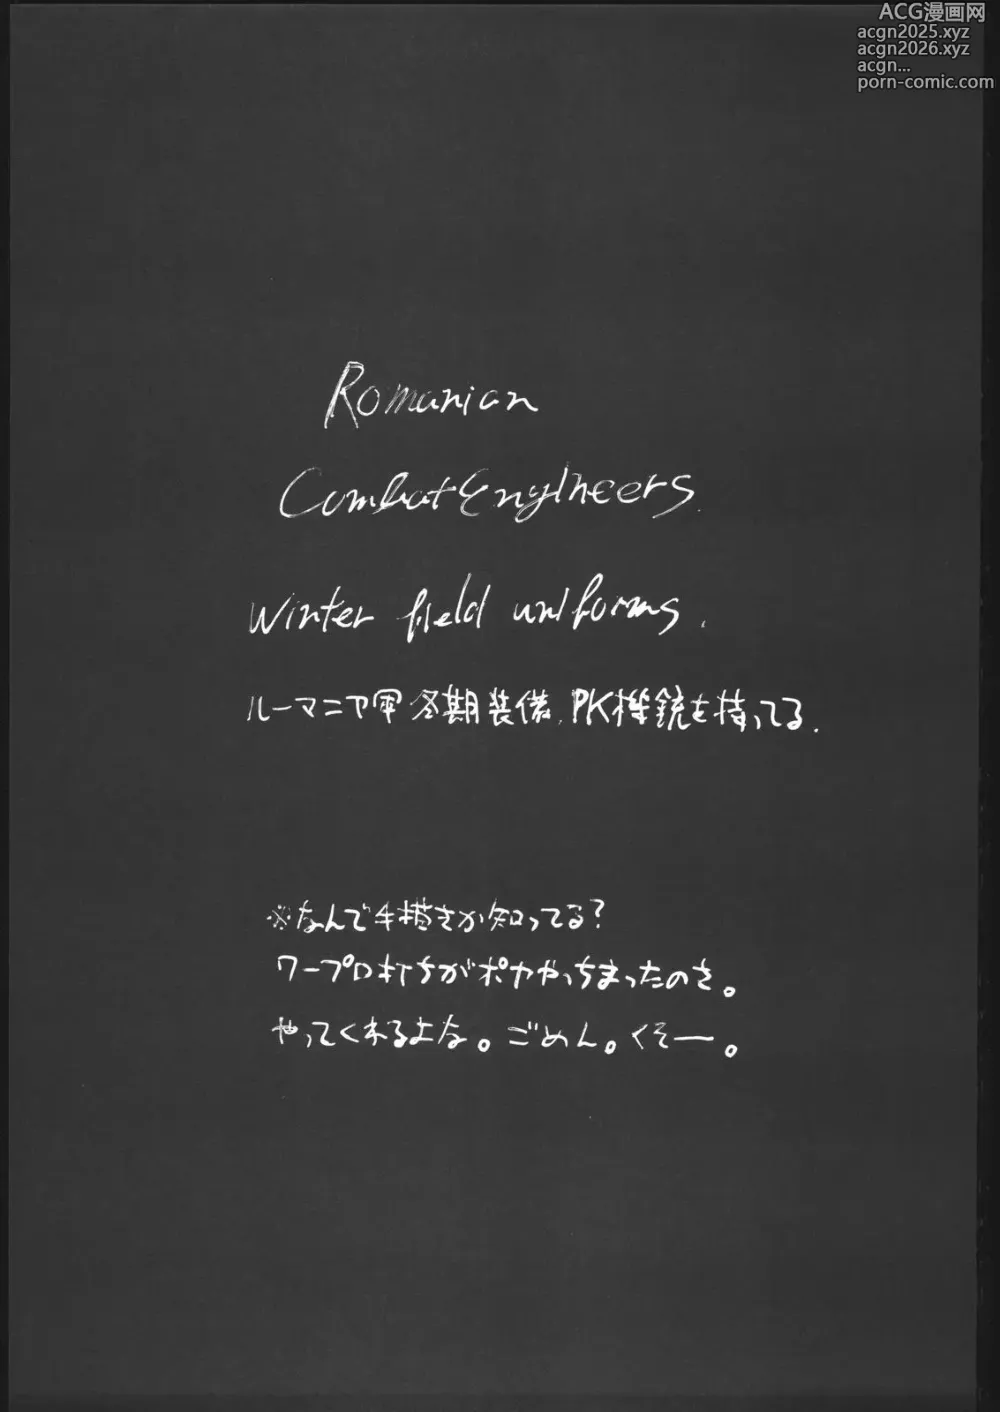 ACG漫画网
acgn2025.xyz
acgn2026.xyz
acgn...
porn-comic.com
Romanian
Combat Engineers
Winter field uniforms.
ルーマニア軍冬期装備、PK機銃を持ってる.
※なんで手描きか知ってる?
ワープロ打ちがポカやっちまったのさ。
やってくれるよな。ごめん。くそー。